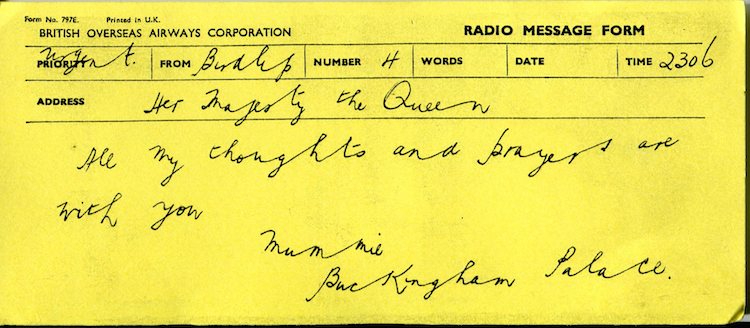 Form No. 797E. Printed in U.K.
BRITISH OVERSEAS AIRWAYS CORPORATION RADIO MESSAGE FORM
PRIORITY Urgent. FROM Birdlip NUMBER 4 WORDS DATE TIME 2306
ADDRESS Her Majesty the Queen
All my thoughts and prayers are
with you
Mummie
Buckingham Palace.